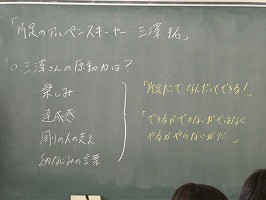 「片足のアルペンスキーヤー 三澤 拓」
○三澤さんの原動力は？
・楽しみ
・達成感
・周りの人の支え
・幼なじみの言葉
「片足だって なんだってできる！」
「できるかできないかではなく
やるかやらないかだ」